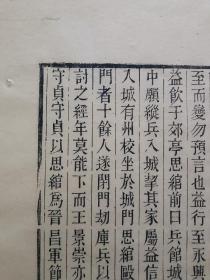 至而變勿預言也益行至永興
益飲于郊亭思綰前曰兵館城
中願縱兵入城挈其家屬益信
入城有州校坐於城門思綰毆
門者十餘人遂閉門劫庫兵以
討之經年莫能下而王景崇亦
守貞守貞以思綰爲晉昌軍節